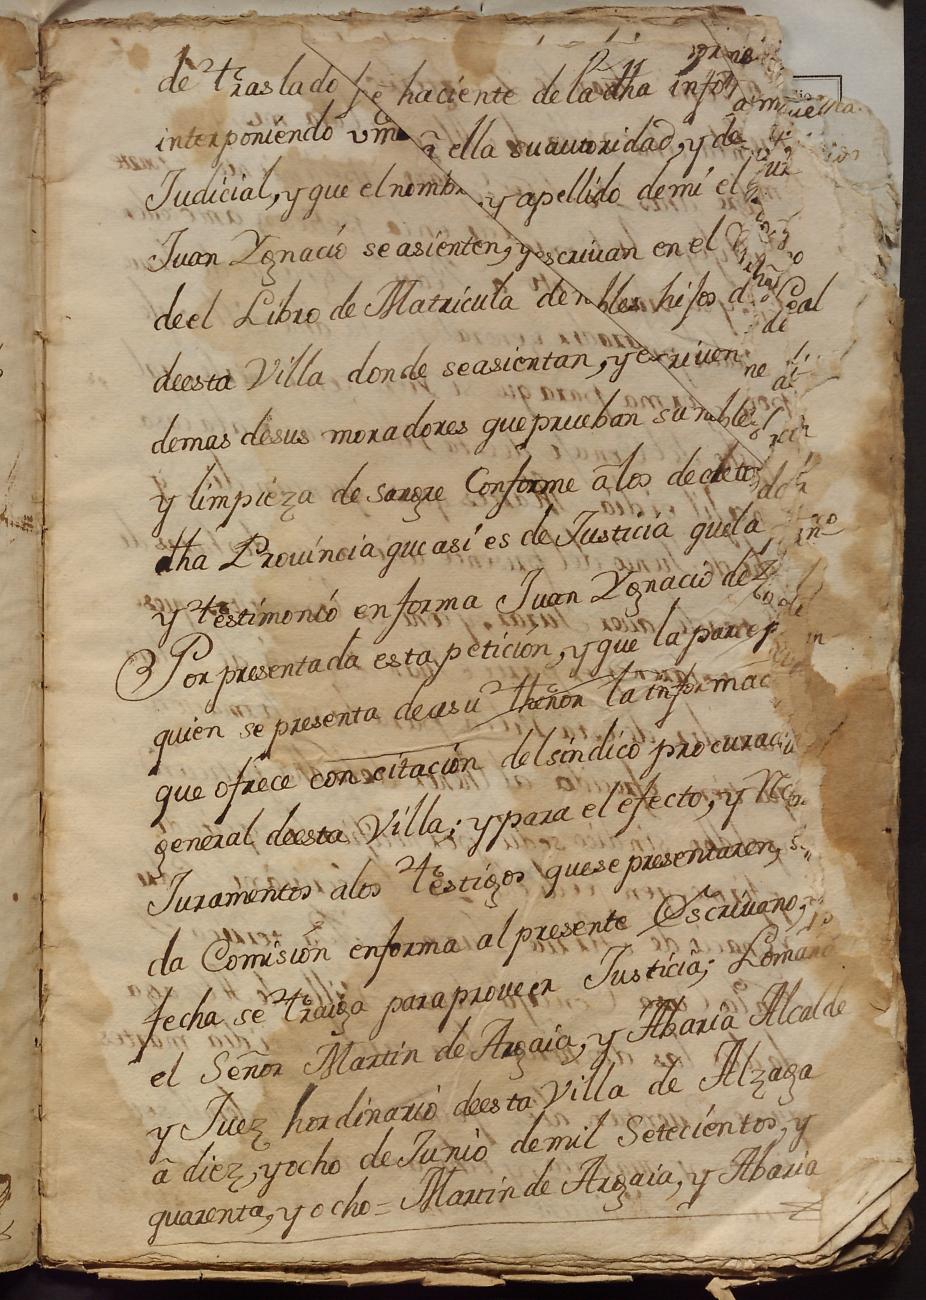 de traslado feê haciente de la dha
interponiendo vmd â ella su autoridad, y de
Judicial, y que el nombre y apellido de mi el
Juan Ygnacio se asienten, y escriuan en el
de el Libro de Matricula de nobles hijos d
de esta Villa donde se asientan, y escriuen
demas de sus moradores que prueban su noble
y limpieza de sangre Conforme â los decretos
dha Prouincia que asi es de Justicia que la
y testimonio en forma Juan Ygnacio de
Por presentada esta peticion, y que la parte
quien se presenta de a su thenor la informac
que ofrece con citación del sindico procurad
general de esta Villa; y para el efecto, y
Juramentos a los testigos que se presentaren,
da Comision en forma al presente Escriuano,
fecha se traiga para proueer Justicia; Lo
el Señor Martin de Argaia, y Abaria Alcalde
y Juez hordinario de esta Villa de Alzaga
â diez, y ocho de Junio de mil Setecientos, y
quarenta, y ocho = Martin de Argaia, y Abaria